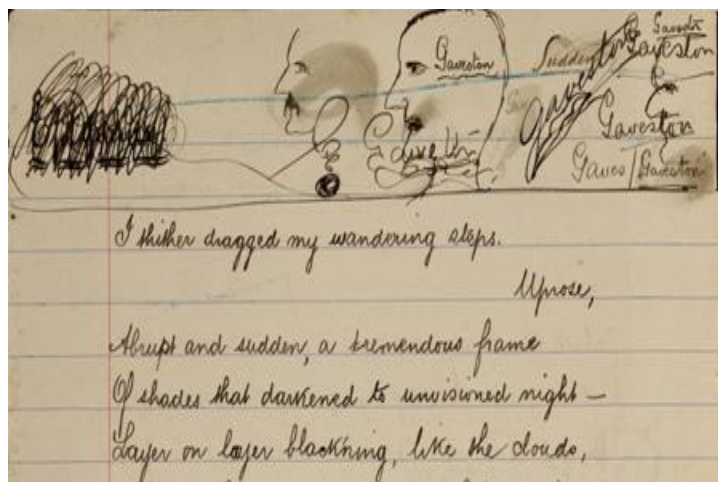 Gaveston
Gaveston
Sudden
Gaveston
Gaveston
Gaveston
Gaves / Gaveston
I thither dragged my wandering steps.
Uprose,
Abrupt and sudden, a tremendous frame
Of shades that darkened to unvisioned night —
Layer on layer black'ning, like the clouds,